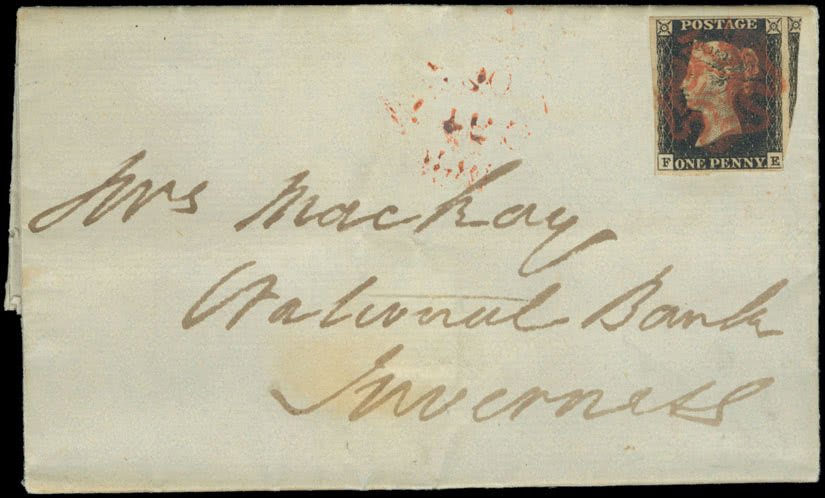 POSTAGE
F ONE PENNY. E
Mrs Mackay
National Bank
Inverness